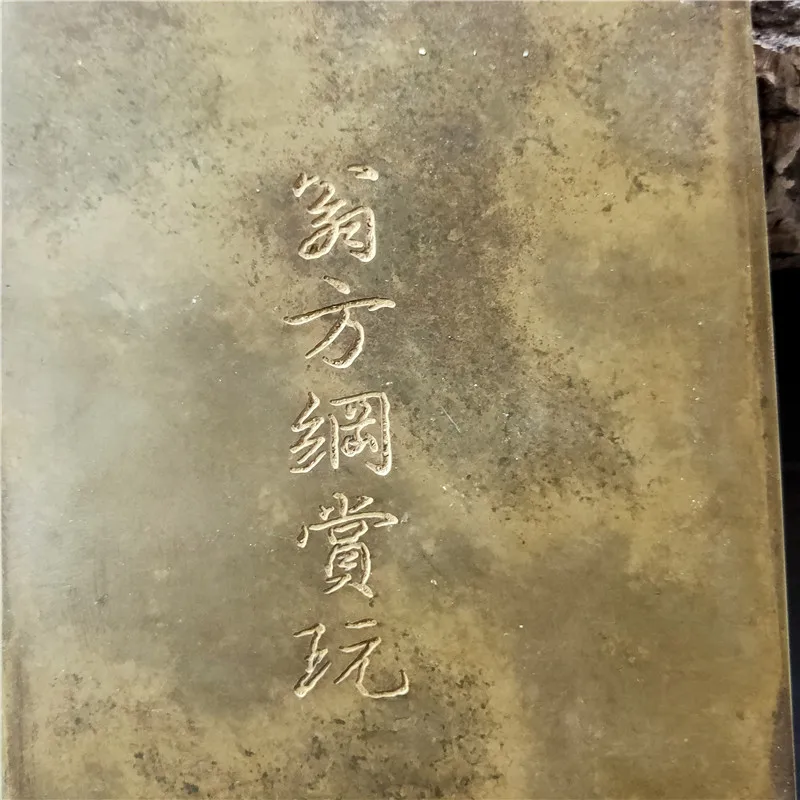 翁方綱賞玩